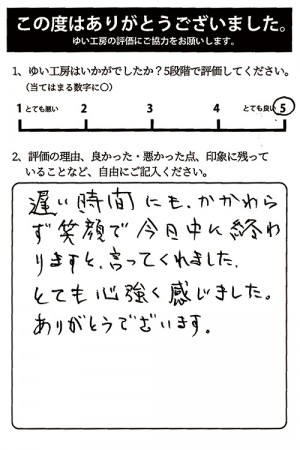 この度はありがとうございました。
ゆい工房の評価にご協力をお願いします。
1、ゆい工房はいかがでしたか？5段階で評価してください。
（当てはまる数字に○）
1 とても悪い 2 3 4 とても良い 5
2、評価の理由、良かった・悪かった点、印象に残って
いることなど、自由にご記入ください。
遅い時間にも、かかわら
ず笑顔で今日中に終わ
りますと、言ってくれました、
とても心強く感じました。
ありがとうございます。